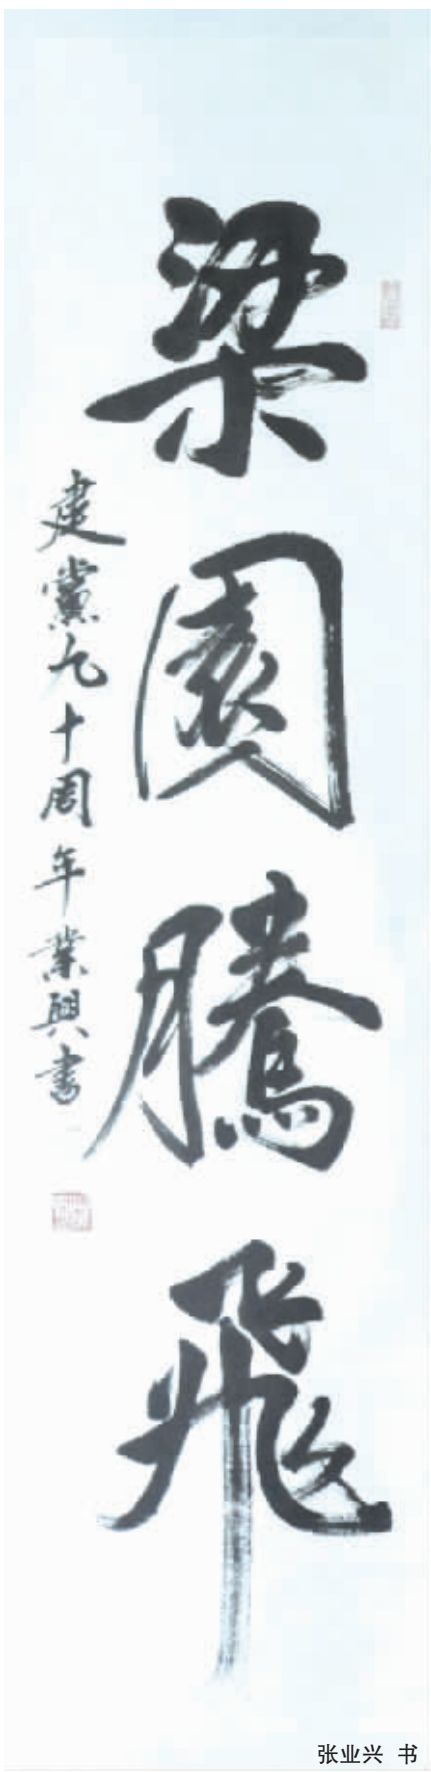 梁園騰飛
建黨九十周年業興書
张业兴 书